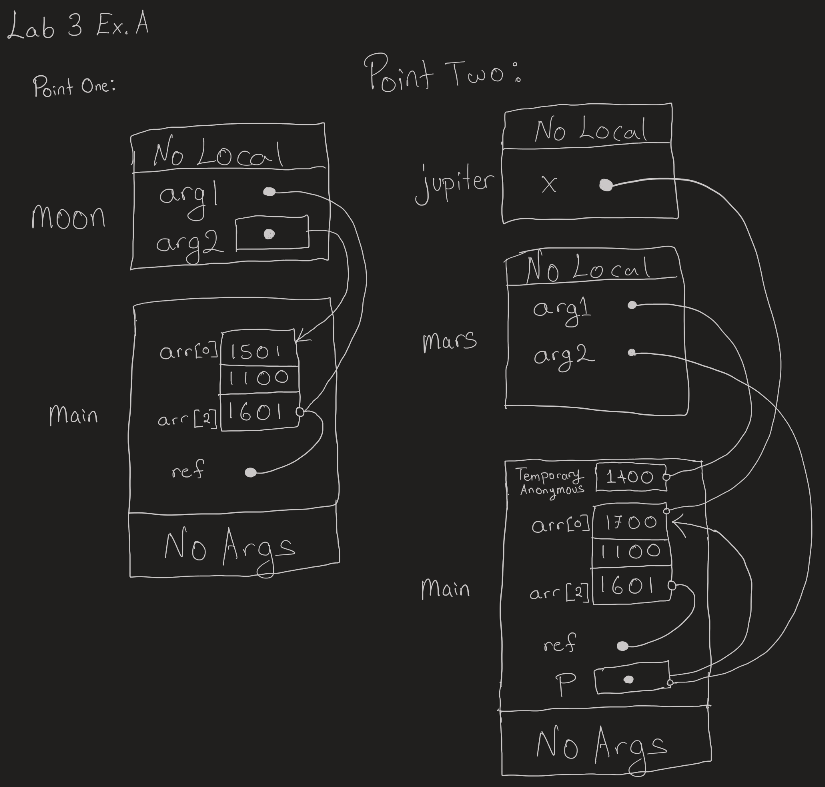 Lab 3 Ex. A
Point One:
No Local
moon
arg1
arg2
Main
arr[0] 1501
1100
arr[2] 1601
ref
No Args
Point Two:
No Local
jupiter
x
No Local
mars
arg1
arg2
Main
Temporary
Anonymous
1400
arr[0] 1700
1100
arr[2] 1601
ref
P
No Args